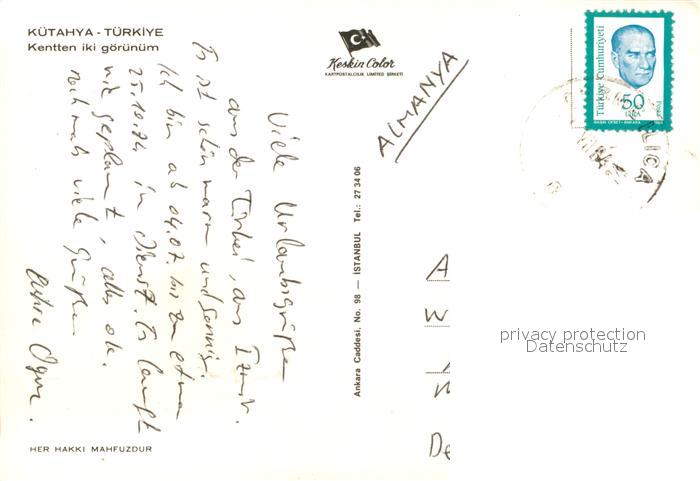 KÜTAHYA - TÜRKİYE
Kentten iki görünüm
Keskin Color
KARTPOSTALCILIK LIMITED ŞIRKETI
Viele Urlaubsgrüße
aus der Türkei, aus Izmir.
Es ist schön warm und sonnig.
Ich bin ab 04.07 bis zu etwa
25.10.84 in Dienst. Es läuft
wie geplant, alles ok.
nochmals viele Grüße
Ankara Caddesi, No. 98 — İSTANBUL Tel.: 27 34 06
HER HAKKI MAHFUZDUR
ALMANYA
Türkiye Cumhuriyeti
50
LİRA
Posta
A
W
De
privacy protection
Datenschutz